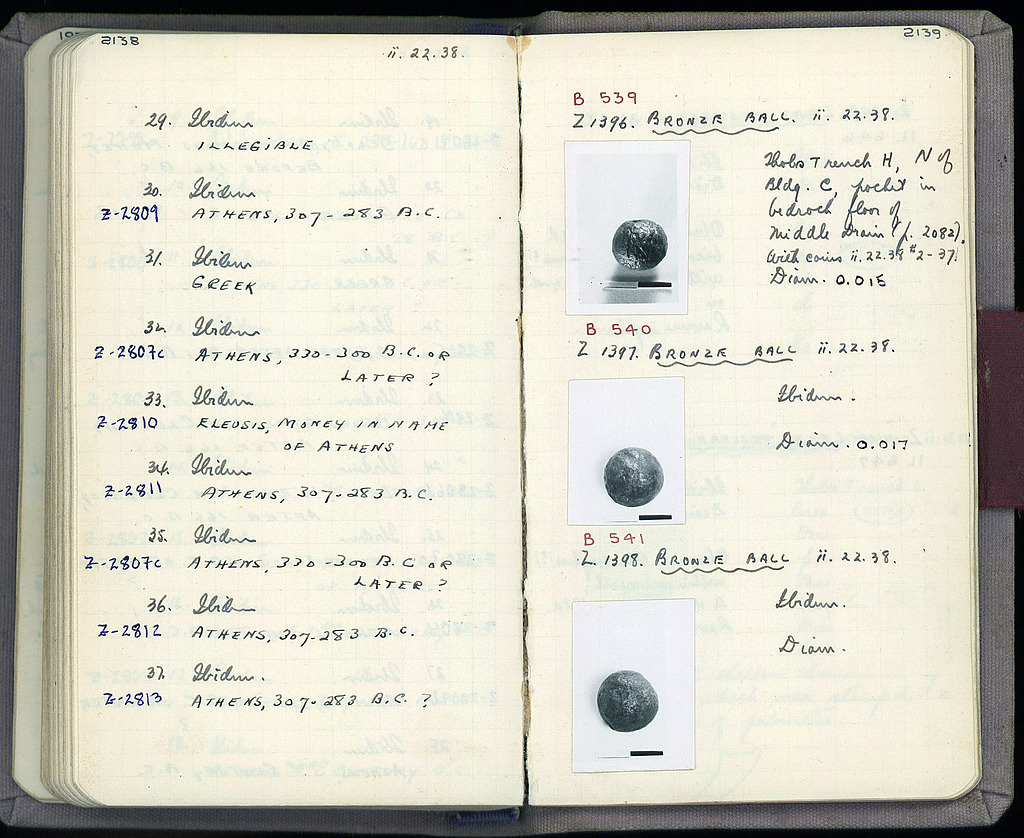 2138
ii. 22. 38.
29. Ibidem
ILLEGIBLE
30. Ibidem
Z-2809 ATHENS, 307-283 B.C.
31. Ibidem
GREEK
32. Ibidem
Z-2807c ATHENS, 330-300 B.C. OR
LATER ?
33. Ibidem
Z-2810 ELEUSIS, MONEY IN NAME
OF ATHENS
34. Ibidem
Z-2811 ATHENS, 307-283 B.C.
35. Ibidem
Z-2807c ATHENS, 330-300 B.C. OR
LATER ?
36. Ibidem
Z-2812 ATHENS, 307-283 B.C.
37. Ibidem.
Z-2813 ATHENS, 307-283 B.C. ?
2139
B 539
Z 1396. BRONZE BALL. ii. 22.38.
Tholos Trench H, N of
Bldg. C, pocket in
bedrock floor of
Middle Drain (p. 2082).
With coins ii.22.38 #2-37.
Diam. 0.015
B 540
Z 1397. BRONZE BALL ii. 22.38.
Ibidem.
Diam. 0.017
B 541
Z 1398. BRONZE BALL ii. 22.38.
Ibidem.
Diam.